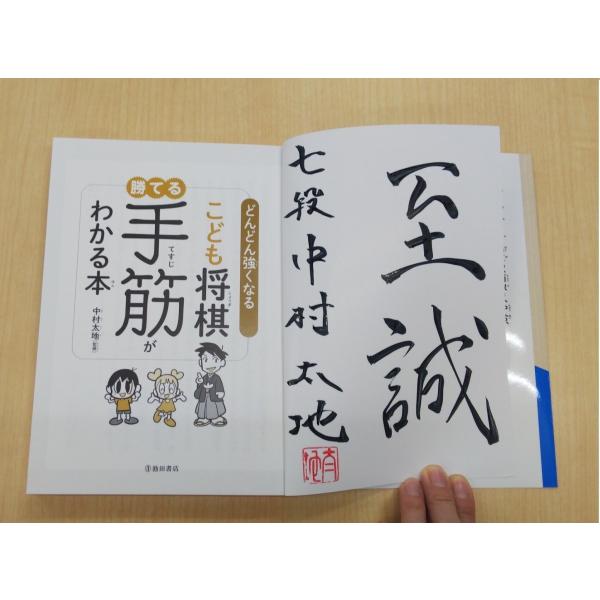 至誠
七段 中村太地
どんどん強くなる
こども将棋
勝てる
手筋が
てすじ
わかる本
中村太地 監修
池田書店